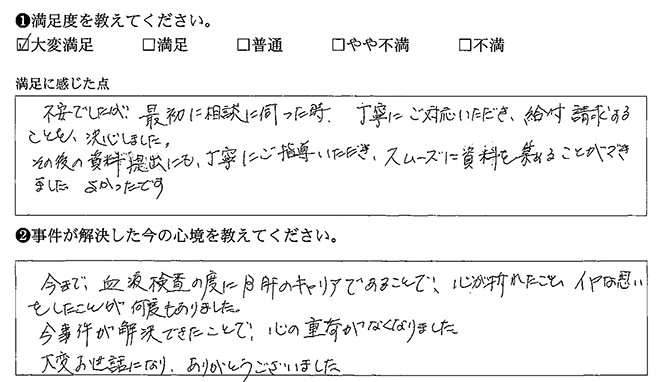 ❶満足度を教えてください。
☑大変満足 □満足 □普通 □やや不満 □不満
満足に感じた点
不安でしたが、最初に相談に伺った時、丁寧にご対応いただき、給付請求する
ことを、決心しました。
その後の資料提出にも、丁寧にご指導いただき、スムーズに資料を集めることができ
ました よかったです
❷事件が解決した今の心境を教えてください。
今まで、血液検査の度にB肝のキャリアであることで、心が折れたこと、イヤな思い
をしたことが何度もありました。
今事件が解決できたことで、心の重荷がなくなりました
大変お世話になり、ありがとうございました